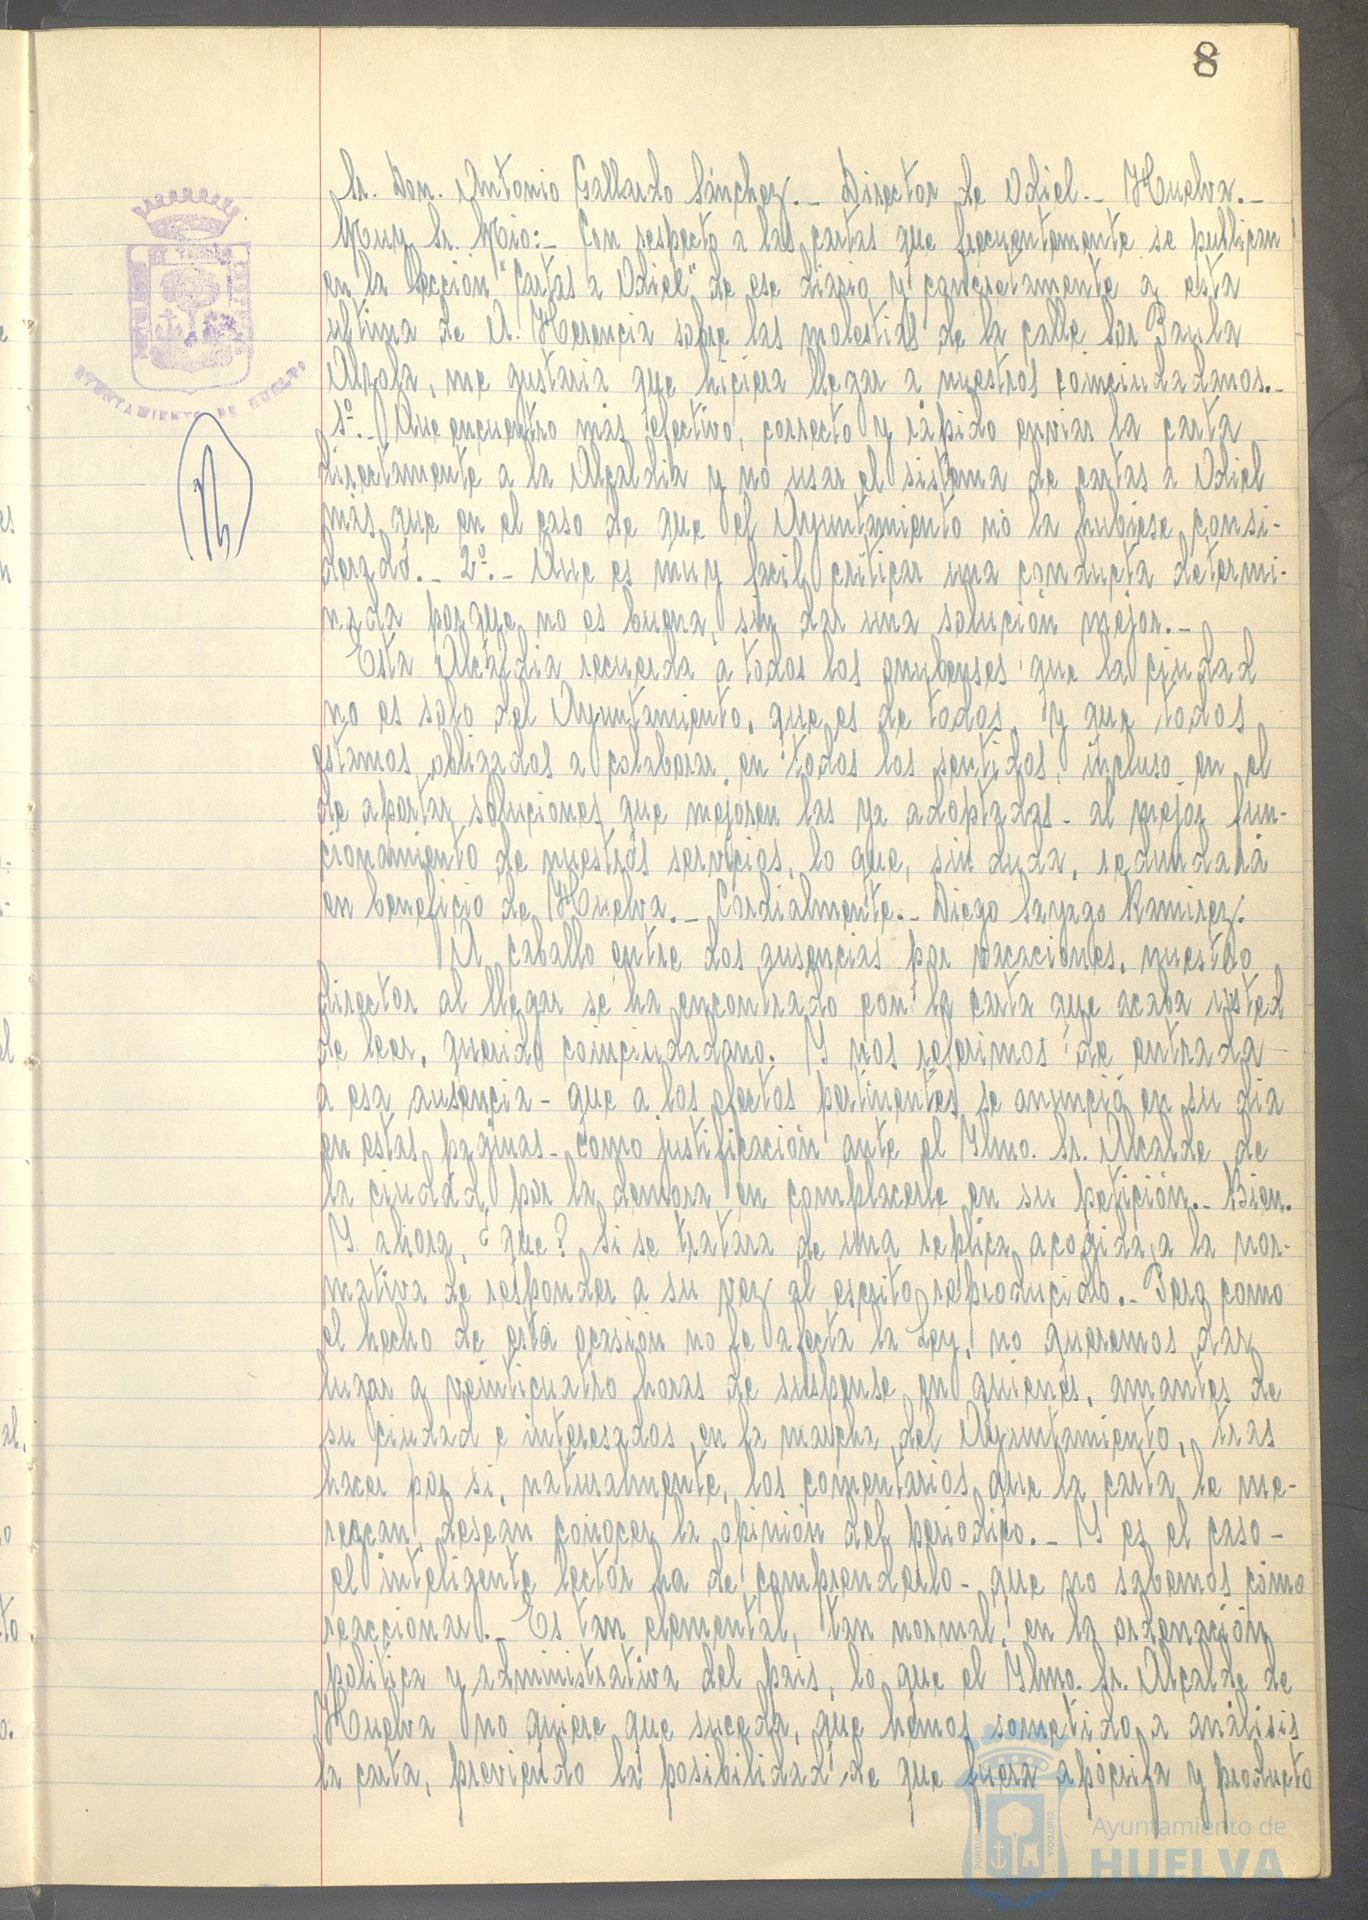 8
Sr. Don. Antonio Gallardo Sánchez.- Director de Odiel.- Huelva.-
Muy Sr. Mio:- Con respecto a las cartas que frecuentemente se publican
en la Sección "Cartas a Odiel" de ese diario y concretamente a esta
ultima de A. Herencia sobre las molestias de la calle Sor Paula
Alzola, me gustaria que hiciera llegar a nuestros coinciudadanos.-
1º.- Que encuentro más efectivo, correcto y rápido enviar la carta
directamente a la Alcaldia y no usar el sistema de cartas a Odiel
más que en el caso de que el Ayuntamiento no la hubiese consi-
derado.- 2º.- Que es muy facil criticar una conducta determi-
nada porque no es buena, sin dar una solución mejor.-
Esta Alcaldia recuerda a todos los onubenses que la ciudad
no es solo del Ayuntamiento, que es de todos, y que todos
estamos obligados a colaborar en todos los sentidos, incluso en el
de aportar soluciones que mejoren las ya adoptadas- al mejor fun-
cionamiento de nuestros servicios, lo que, sin duda, redundará
en beneficio de Huelva.- Cordialmente.- Diego Sayago Ramirez.
A caballo entre dos ausencias por vacaciones, nuestro
director al llegar se ha encontrado con la carta que acaba usted
de leer, querido coinciudadano. Y nos referimos de entrada
a esa ausencia- que a los efectos pertinentes se anunció en su dia
en estas paginas- como justificación ante el Ylmo. Sr. Alcalde de
la ciudad por la demora en complacerle en su petición.- Bien.
Y ahora, ¿que? Si se tratara de una replica acogida a la nor-
mativa de responder a su vez al escrito reproducido.- Pero como
el hecho de esta ocasión no le afecta la Ley, no queremos dar
lugar a veinticuatro horas de suspense en quienes, amantes de
su ciudad e interesados en la marcha del Ayuntamiento, tras
hacer por si, naturalmente, los comentarios que la carta le me-
rezcan, desean conocer la opinión del periodico.- Y es el caso-
el inteligente lector ha de comprenderlo- que no sabemos cómo
reaccionar.- Es tan elemental, tan normal, en la ordenación
politica y administrativa del pais, lo que el Ylmo. Sr. Alcalde de
Huelva no quiere que suceda, que hemos sometido a análisis
la carta, previendo la posibilidad de que fuera apócrifa y producto
AYUNTAMIENTO DE HUELVA
Ayuntamiento de
HUELVA